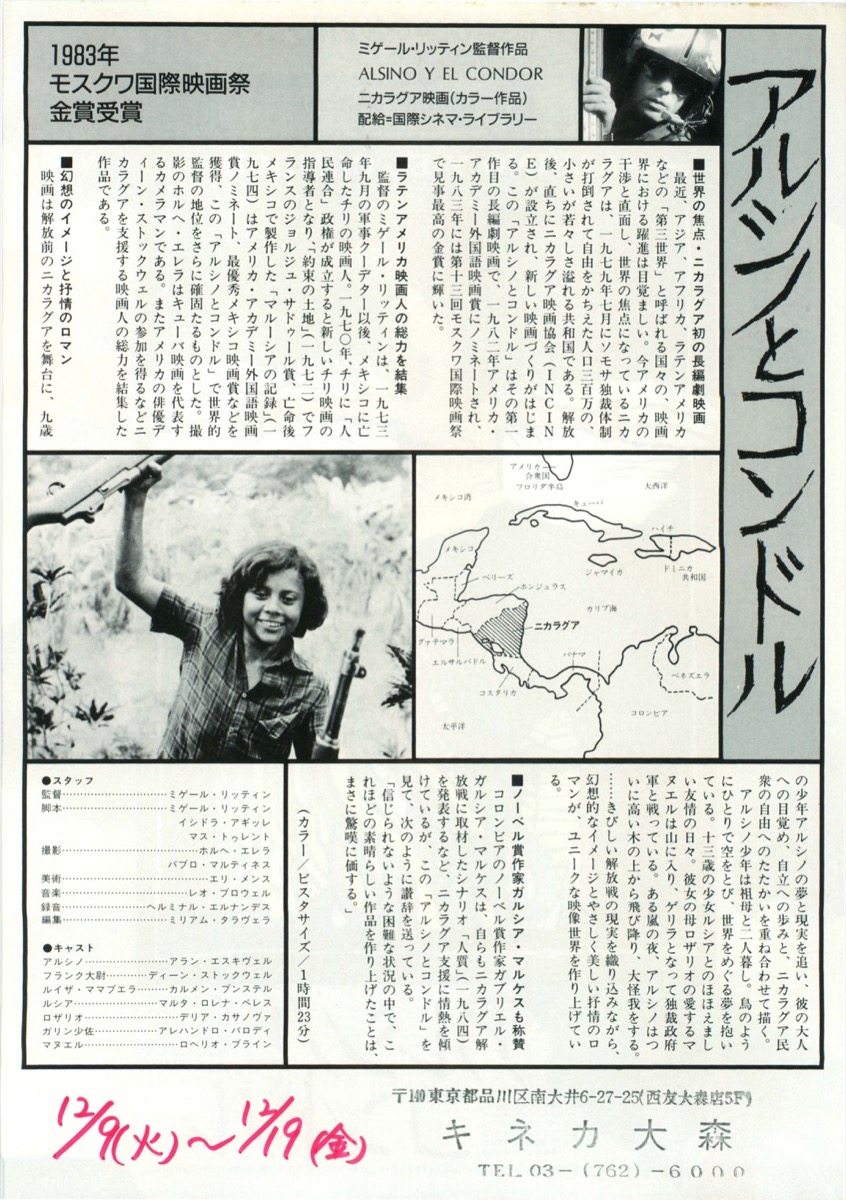 アルシノとコンドル
1983年
モスクワ国際映画祭
金賞受賞
ミゲール・リッティン監督作品
ALSINO Y EL CONDOR
ニカラグア映画(カラー作品)
配給=国際シネマ・ライブラリー
■世界の焦点・ニカラグア初の長編劇映画
最近、アジア、アフリカ、ラテンアメリカ
などの「第三世界」と呼ばれる国々の、映画
界における躍進は目覚ましい。今アメリカの
干渉と直面し、世界の焦点になっているニカ
ラグアは、一九七九年七月にソモサ独裁体制
が打倒されて自由をかちえた人口三百万の、
小さいが若々しさ溢れる共和国である。解放
後、直ちにニカラグア映画協会(INCIN
E)が設立され、新しい映画づくりがはじま
る。この「アルシノとコンドル」はその第一
作目の長編劇映画で、一九八二年アメリカ・
アカデミー外国語映画賞にノミネートされ、
一九八三年には第十三回モスクワ国際映画祭
で見事最高の金賞に輝いた。
■ラテンアメリカ映画人の総力を結集
監督のミゲール・リッティンは、一九七三
年九月の軍事クーデター以後、メキシコに亡
命したチリの映画人。一九七〇年、チリに「人
民連合」政権が成立すると新しいチリ映画の
指導者となり、「約束の土地」(一九七二)でフ
ランスのジョルジュ・サドゥール賞、亡命後
メキシコで製作した「マルーシアの記録」(一
九七四)はアメリカ・アカデミー外国語映画
賞ノミネート、最優秀メキシコ映画賞などを
獲得、この「アルシノとコンドル」で世界的
監督の地位をさらに確固たるものとした。撮
影のホルヘ・エレラはキューバ映画を代表す
るカメラマンである。またアメリカの俳優デ
ィーン・ストックウェルの参加を得るなどニ
カラグアを支援する映画人の総力を結集した
作品である。
■幻想のイメージと抒情のロマン
映画は解放前のニカラグアを舞台に、九歳
アメリカ
合衆国
フロリダ半島
大西洋
メキシコ湾
キューバ
ハイチ
メキシコ
ジャマイカ
ドミニカ
共和国
ベリーズ
ホンジュラス
カリブ海
ニカラグア
グァテマラ
エルサルバドル
パナマ
コスタリカ
ベネズエラ
コロンビア
太平洋
の少年アルシノの夢と現実を追い、彼の大人
への目覚め、自立への歩みと、ニカラグア民
衆の自由へのたたかいを重ね合わせて描く。
アルシノ少年は祖母と二人暮し。鳥のよう
にひとりで空をとび、世界をめぐる夢を抱い
ている。十三歳の少女ルシアとのほほえまし
い友情の日々。彼女の母ロザリオの愛するマ
ヌエルは山に入り、ゲリラとなって独裁政府
軍と戦っている。ある嵐の夜、アルシノはつ
いに高い木の上から飛び降り、大怪我をする。
……きびしい解放戦の現実を織り込みながら、
幻想的なイメージとやさしく美しい抒情のロ
マンが、ユニークな映像世界を作り上げてい
る。
■ノーベル賞作家ガルシア・マルケスも称賛
コロンビアのノーベル賞作家ガブリエル・
ガルシア・マルケスは、自らもニカラグア解
放戦に取材したシナリオ「人質」(一九八四)
を発表するなど、ニカラグア支援に情熱を傾
けているが、この「アルシノとコンドル」を
見て、次のように讃辞を送っている。
「信じられないような困難な状況の中で、こ
れほどの素晴らしい作品を作り上げたことは、
まさに驚嘆に価する。」
(カラー/ビスタサイズ/1時間23分)
●スタッフ
監督……ミゲール・リッティン
脚本……ミゲール・リッティン
イシドラ・アギッレ
マス・トゥレント
撮影……ホルヘ・エレラ
パブロ・マルティネス
美術……エリ・メンス
音楽……レオ・ブロウェル
録音……ヘルミナル・エルナンデス
編集……ミリアム・タラヴェラ
●キャスト
アルシノ……アラン・エスキヴェル
フランク大尉……ディーン・ストックウェル
ルイザ・ママブエラ……カルメン・ブンステル
ルシア……マルタ・ロレナ・ペレス
ロザリオ……デリア・カサノヴァ
ガリン少佐……アレハンドロ・パロディ
マヌエル……ロヘリオ・ブライン
〒140東京都品川区南大井6-27-25(西友大森店5F)
キネカ大森
TEL 03-(762)-6000
12/9(火)〜12/19(金)